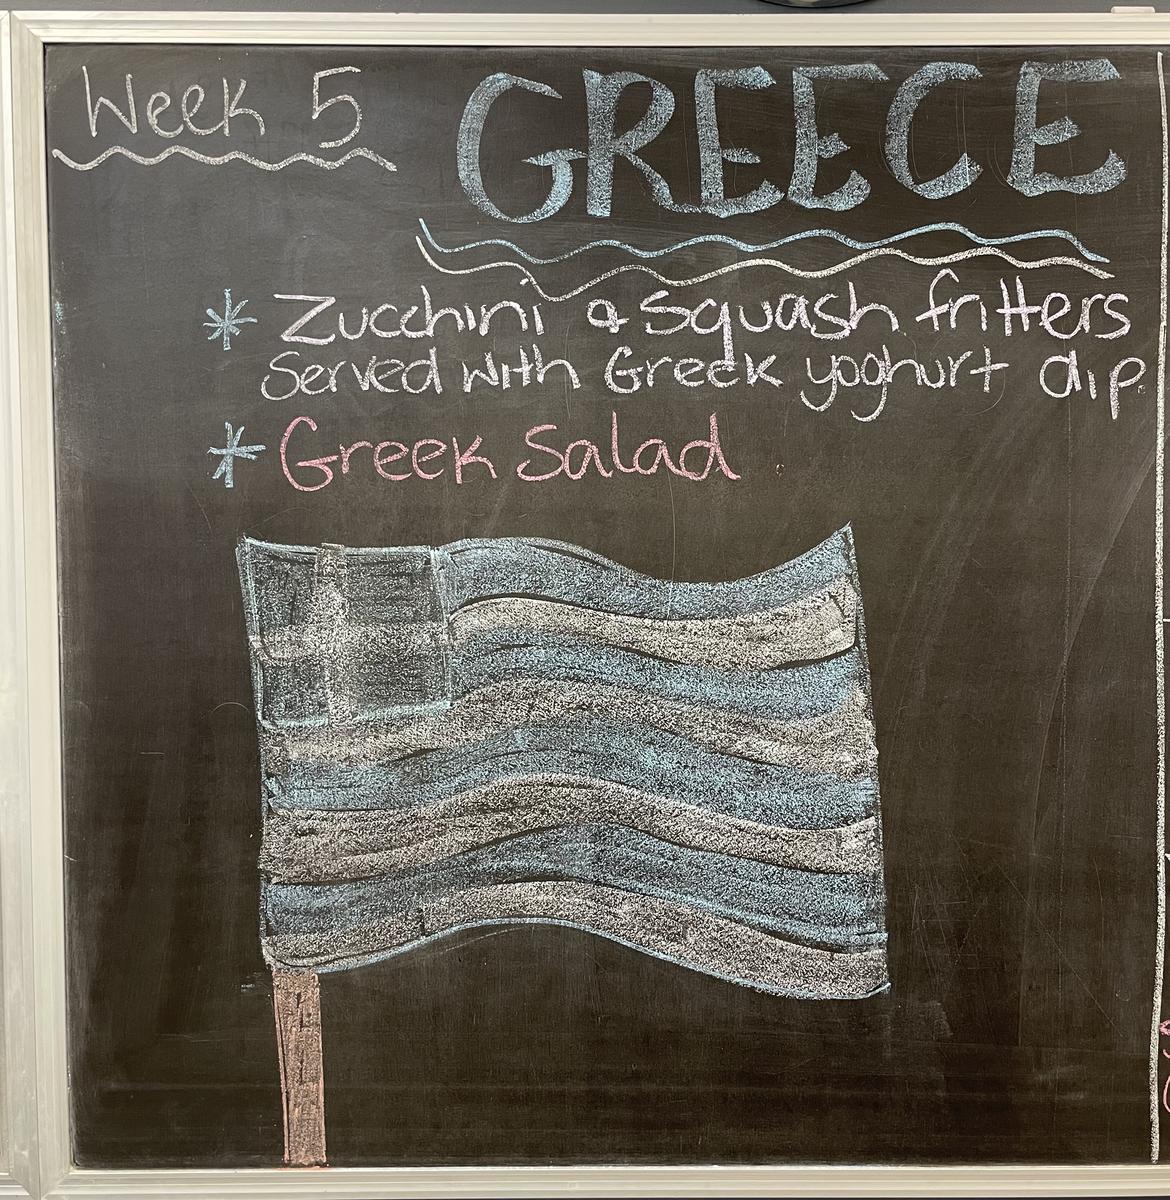 Week 5
GREECE
* Zucchini & Squash fritters
Served with Greek yoghurt dip.
* Greek Salad